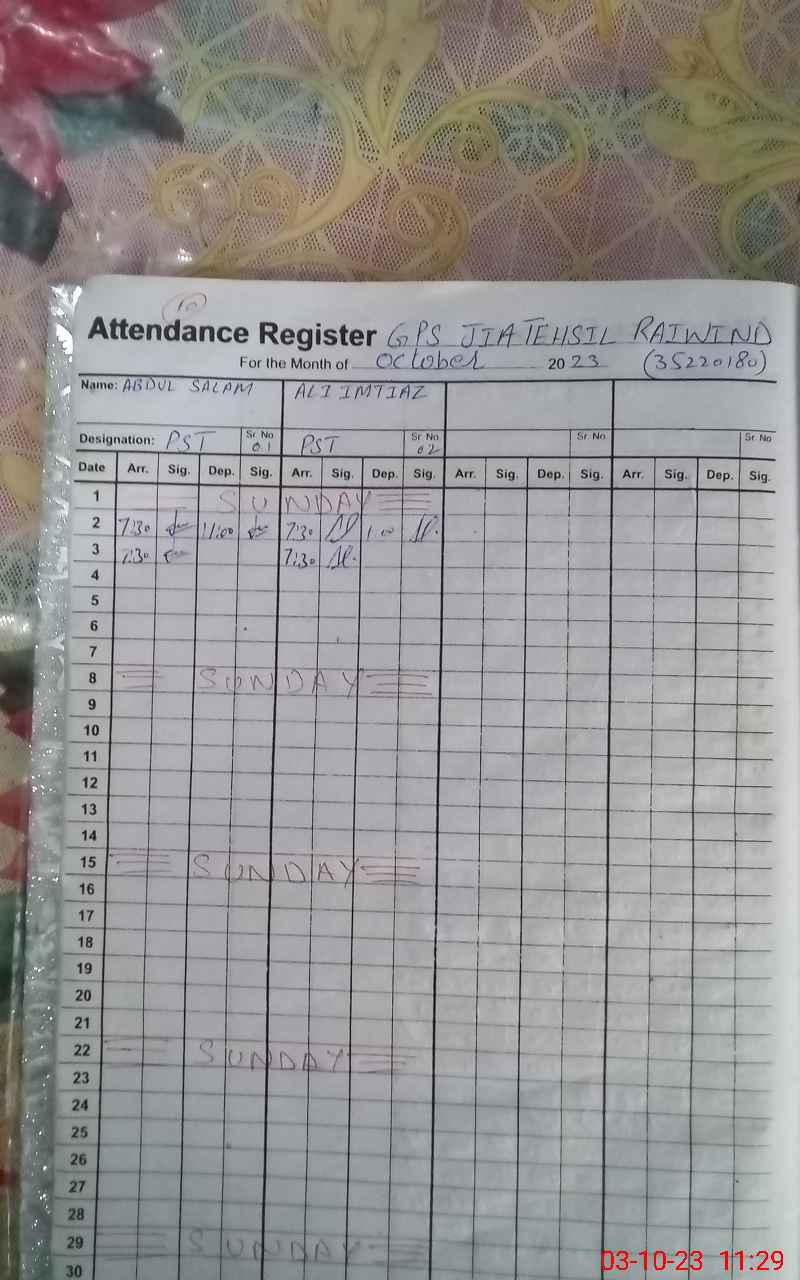 10
Attendance Register GPS JIA TEHSIL RAIWIND
For the Month of October 2023 (35220180)
Name: ABDUL SALAM ALI IMTIAZ
Designation: PST Sr. No 01 PST Sr. No 02 Sr. No Sr. No
Date Arr. Sig. Dep. Sig. Arr. Sig. Dep. Sig. Arr. Sig. Dep. Sig. Arr. Sig. Dep. Sig.
1 SUNDAY
2 7:30 11:00 7:30 1:00
3 7:30 7:30
4
5
6
7
8 SUNDAY
9
10
11
12
13
14
15 SUNDAY
16
17
18
19
20
21
22 SUNDAY
23
24
25
26
27
28
29 SUNDAY
30
03-10-23 11:29